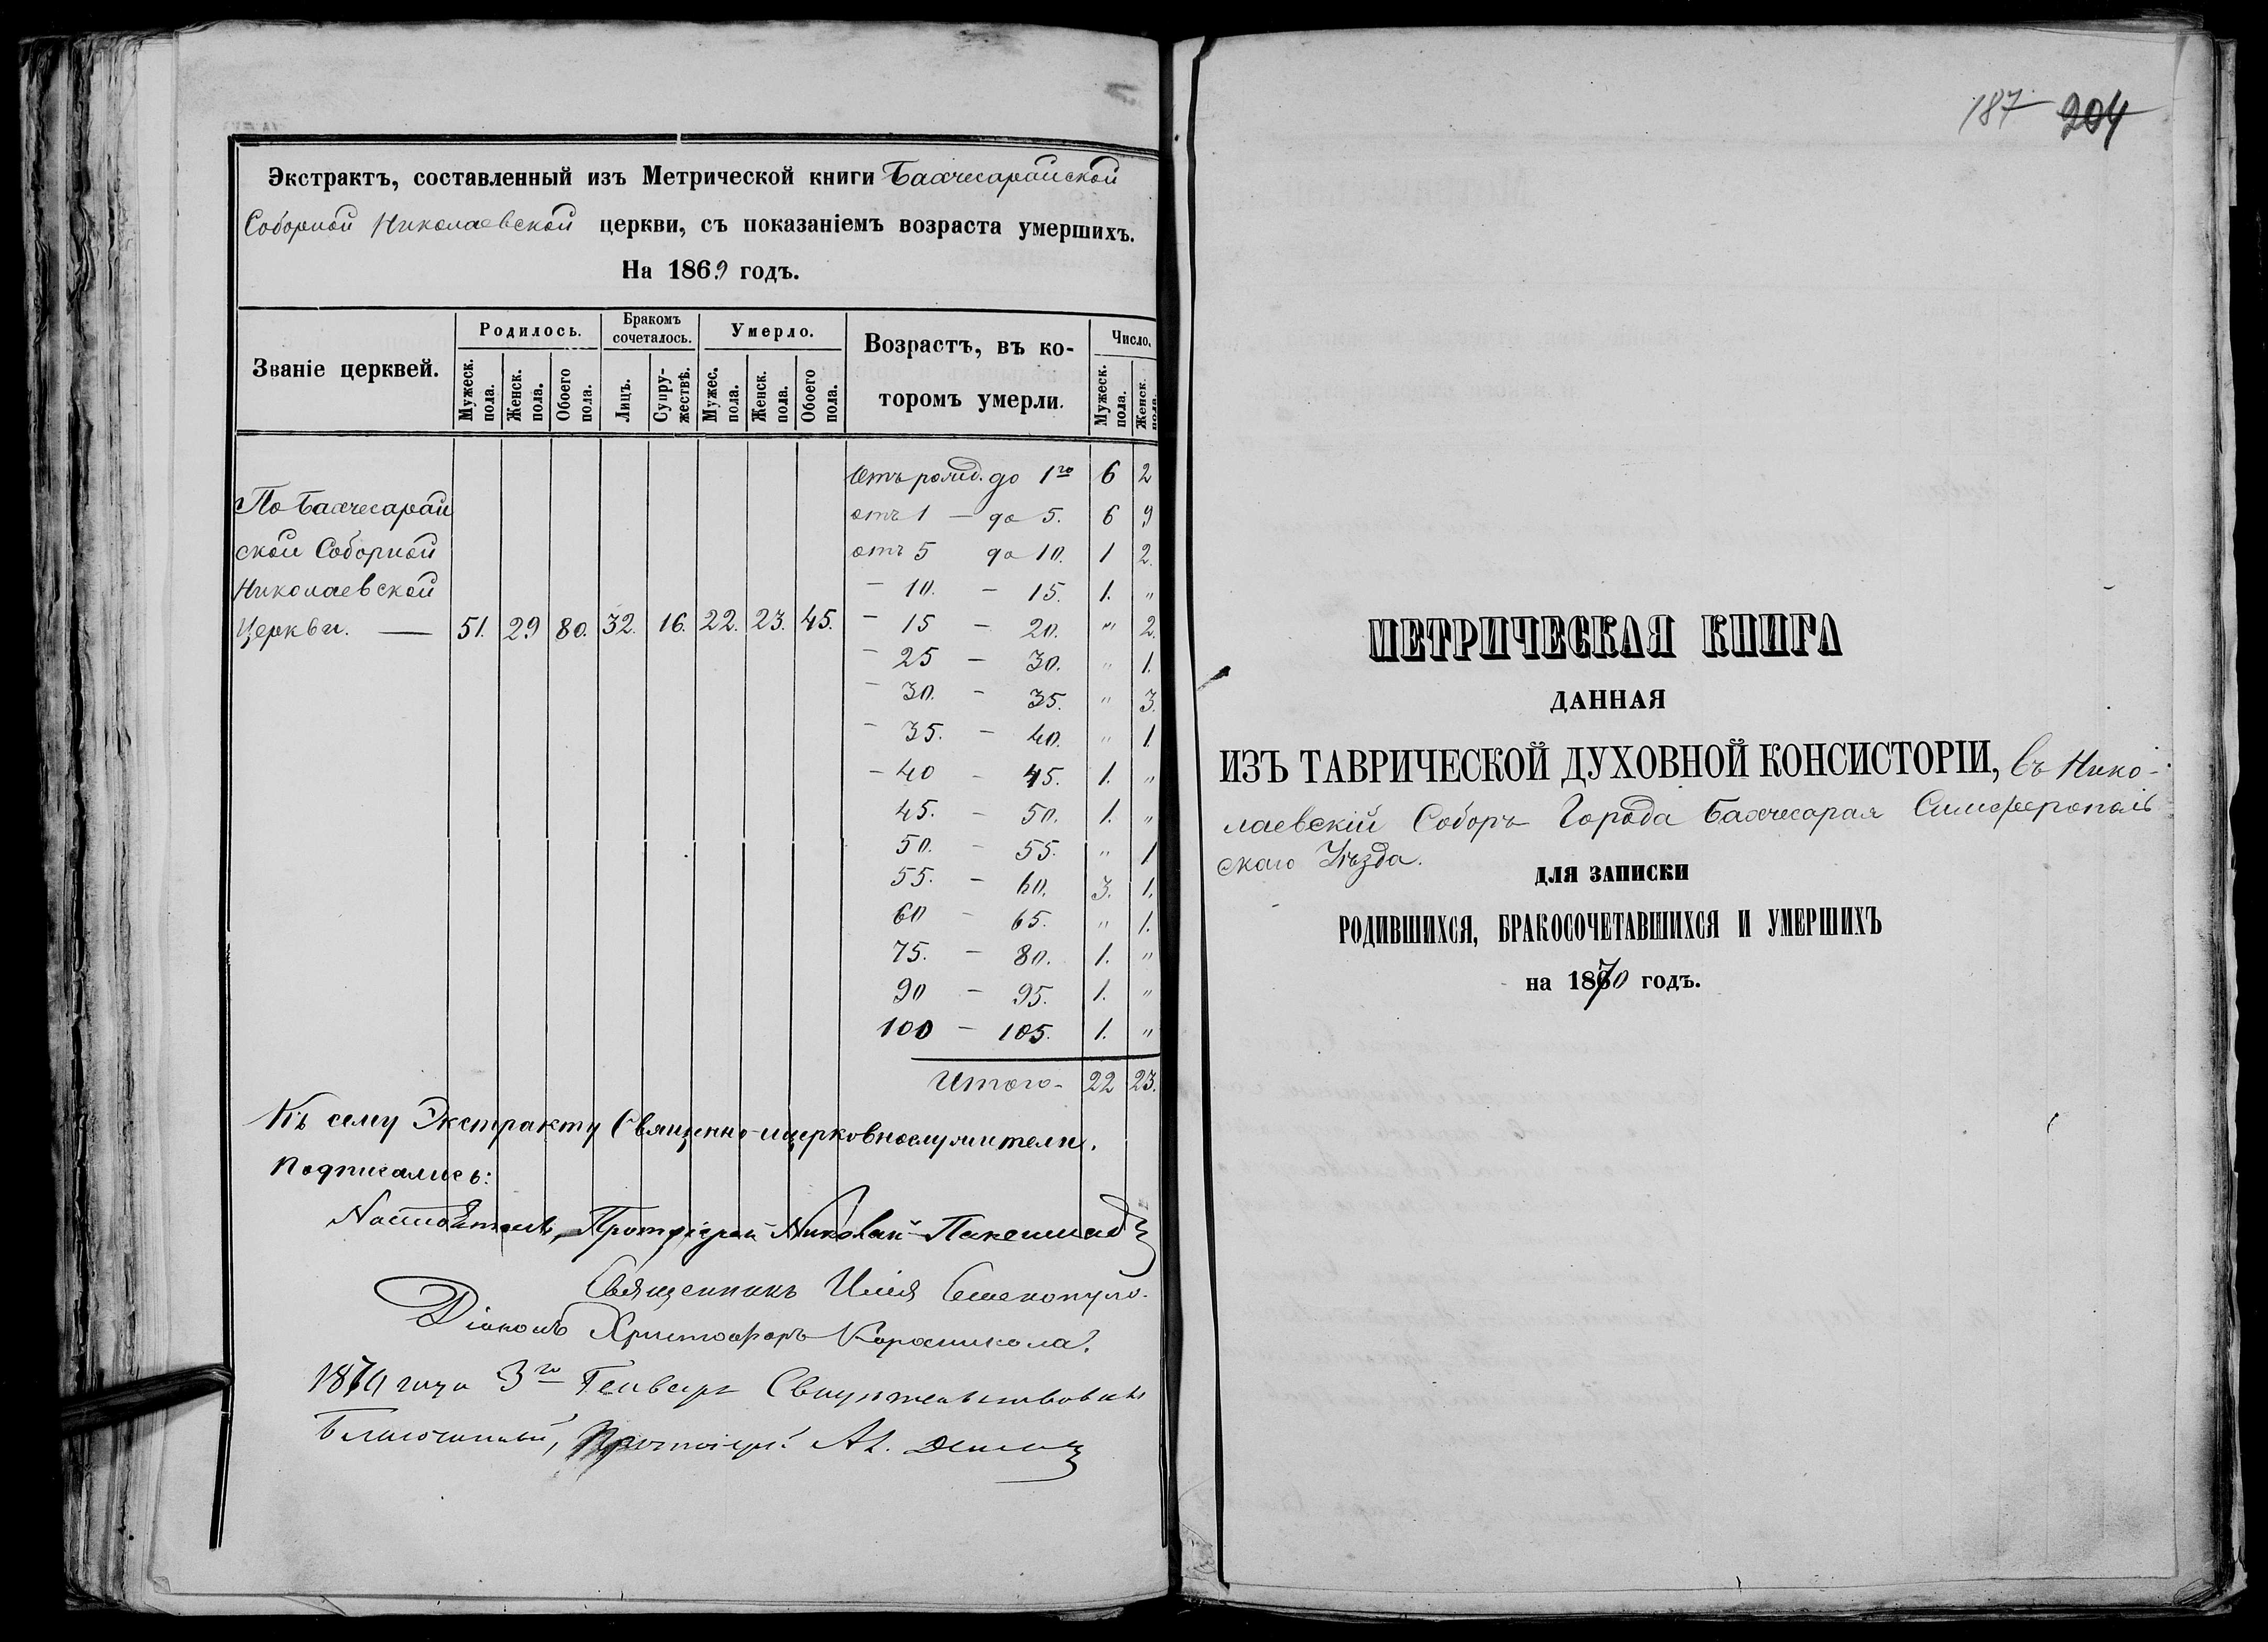 Экстрактъ, составленный изъ Метрической книги Бахчесарайской
Соборной Николаевской церкви, съ показаніемъ возраста умершихъ.
На 1869 годъ.
Званіе церквей.
Родилось.
Бракомъ сочеталось.
Умерло.
Возрастъ, въ ко-
торомъ умерли.
Число.
Мужеск. пола.
Женск. пола.
Обоего пола.
Лицъ.
Супру-жествъ.
Мужес. пола.
Женск. пола.
Обоего пола.
Мужеск. пола.
Женск. пола.
По Бахчесарай
ской Соборной
Николаевской
Церкви. — 51. 29 80. 32. 16. 22. 23. 45.
Отъ рожд. до 1го 6 2
отъ 1 — до 5. 6 9
отъ 5 до 10. 1 2.
— 10. — 15. 1. "
— 15 — 20. " 2.
— 25 — 30. " 1.
— 30. — 35. " 3.
— 35. — 40. " 1
— 40 — 45. 1. "
45. — 50. 1. "
50. — 55. " 1
55. — 60. 3. 1.
60 — 65. " 1.
75. — 80. 1. "
90 — 95. 1. "
100 — 105. 1. "
Итого — 22 23.
Къ сему Экстракту Священно-ицерковнослужители.
Подписались:
Настоятель, Протоіерей Николай
Священникъ Илія
Діаконъ Христофоръ
1870 года 3го Генваря Свидѣтельствовалъ
Благочинный, Протоіерей
187 204
МЕТРИЧЕСКАЯ КНИГА
ДАННАЯ
ИЗЪ ТАВРИЧЕСКОЙ ДУХОВНОЙ КОНСИСТОРІИ, въ Нико-
лаевскій Соборъ Города Бахчесарая Симферополь
скаго Уѣзда.
ДЛЯ ЗАПИСКИ
РОДИВШИХСЯ, БРАКОСОЧЕТАВШИХСЯ И УМЕРШИХЪ
на 1870 годъ.